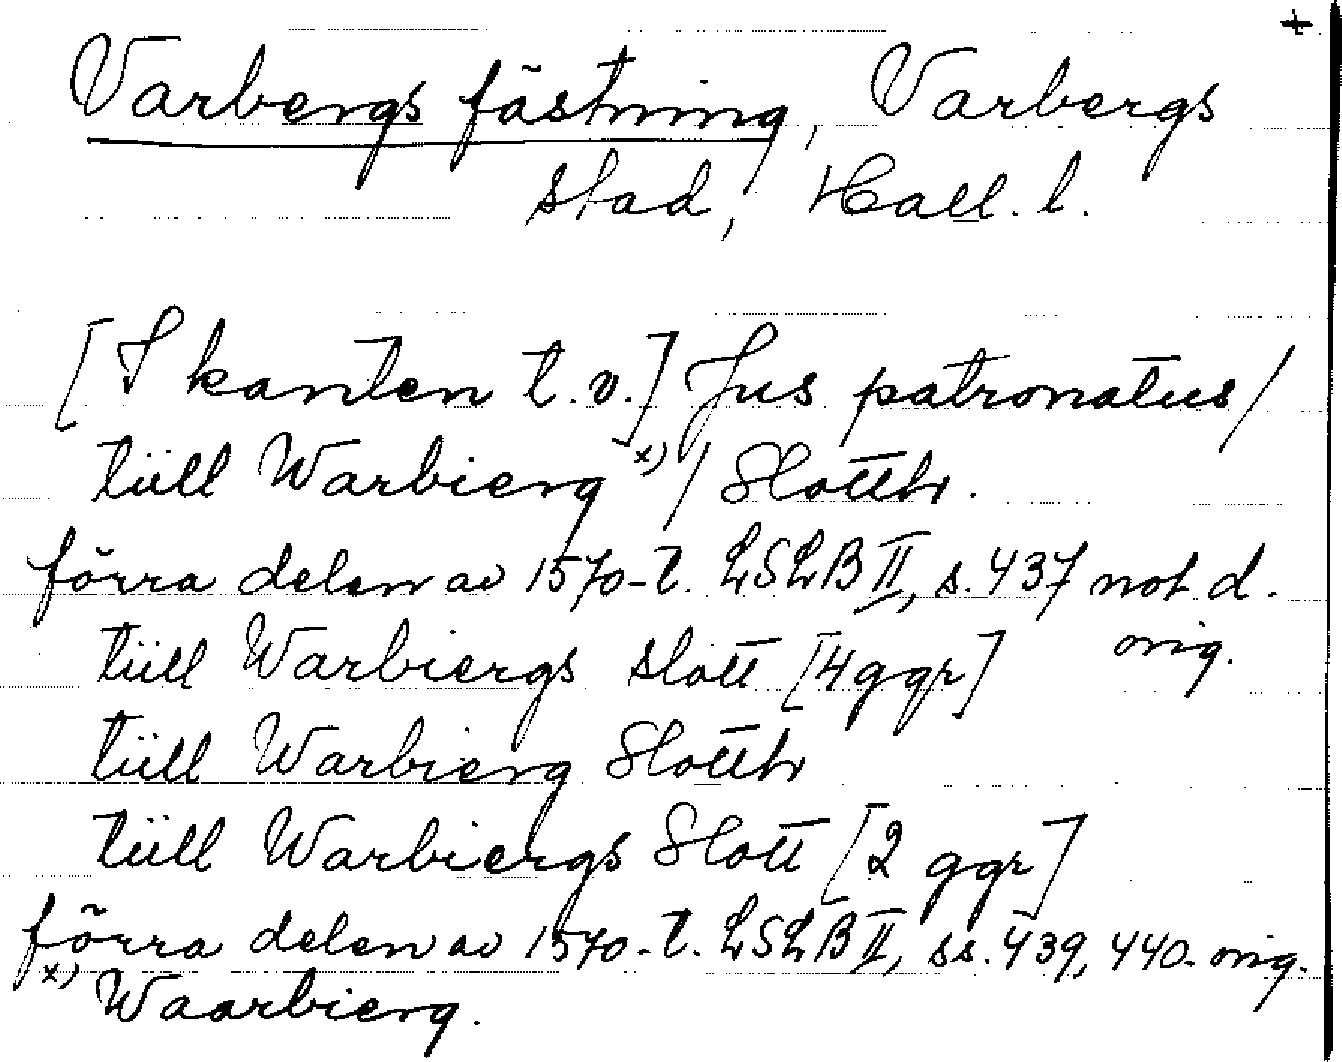 +
Varbergs fästning, Varbergs
stad, Hall. l.
[I kanten t.v.] Jus patronatus/
tüll Warbierg x) / Slotth.
förra delen av 1570-t. LSLB II, s. 437 not d.
orig.
tüll Warbiergs slott [4 ggr]
tüll Warbierg Slotth
tüll Warbiergs Slott [2 ggr]
förra delen av 1570-t. LSLB II, ss. 439, 440. orig.
x) Waarbierg.